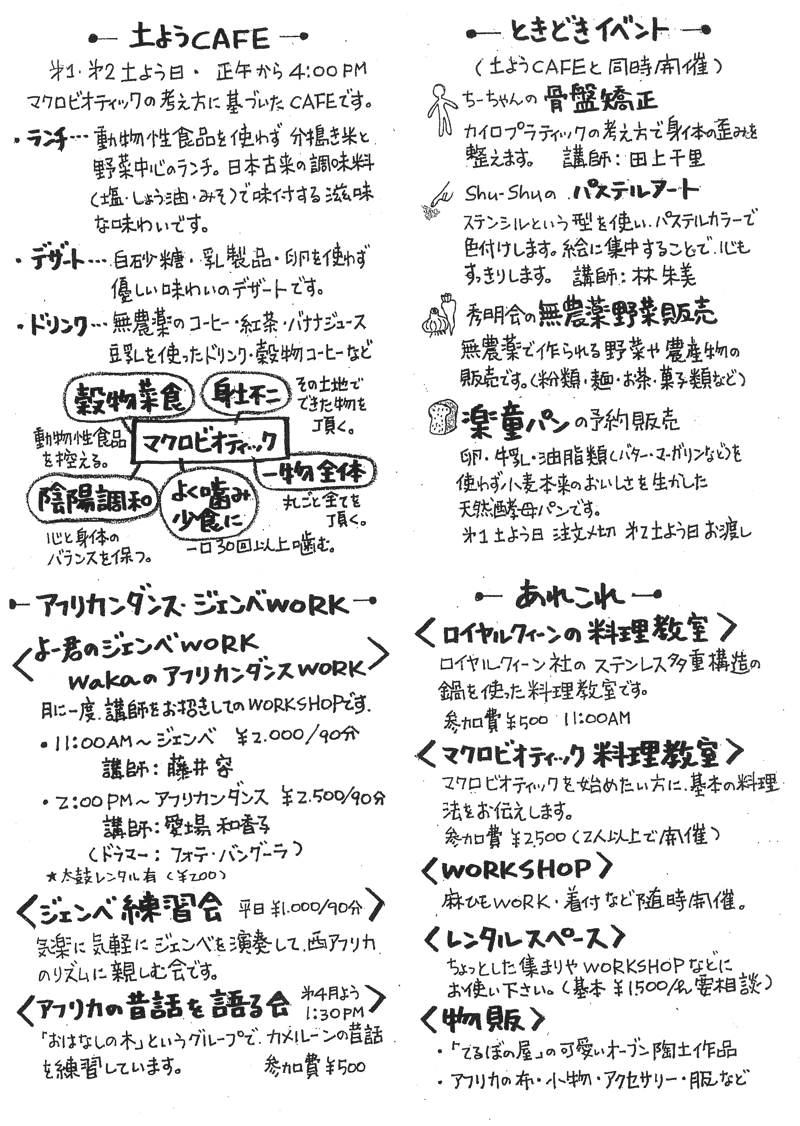 土ようCAFE
第1・第2土よう日・正午から4:00PM
マクロビオティックの考え方に基づいたCAFEです。
・ランチ…動物性食品を使わず分搗き米と
野菜中心のランチ。日本古来の調味料
(塩・しょう油・みそ)で味付する滋味
な味わいです。
・デザート…白砂糖・乳製品・卵を使わず
優しい味わいのデザートです。
・ドリンク…無農薬のコーヒー・紅茶・バナナジュース
豆乳を使ったドリンク・穀物コーヒーなど
穀物菜食
身土不二
その土地で
できた物を
頂く。
動物性食品
を控える。
マクロビオティック
一物全体
丸ごと全てを
頂く。
陰陽調和
心と身体の
バランスを保つ。
よく噛み
少食に
一口30回以上噛む。
アフリカンダンス・ジェンベWORK
〈よー君のジェンベWORK
wakaのアフリカンダンスWORK〉
月に一度、講師をお招きしてのWORKSHOPです.
・11:00AM〜ジェンベ ¥2.000/90分
講師:藤井容
・2:00PM〜アフリカンダンス ¥2.500/90分
講師:愛場和香子
(ドラマー:フォデ・バングーラ)
★太鼓レンタル有(¥200)
〈ジェンベ練習会 平日¥1.000/90分〉
気楽に気軽にジェンベを演奏して、西アフリカ
のリズムに親しむ会です。
〈アフリカの昔話を語る会 第4月よう
1:30PM〉
「おはなしの木」というグループで、カメルーンの昔話
を練習しています。 参加費¥500
ときどきイベント
(土ようCAFEと同時開催)
ちーちゃんの骨盤矯正
カイロプラティックの考え方で身体の歪みを
整えます。 講師:田上千里
Shu-Shuの パステルアート
ステンシルという型を使い、パステルカラーで
色付けします。絵に集中することで、心も
すっきりします。 講師:林朱美
秀明会の無農薬野菜販売
無農薬で作られる野菜や農産物の
販売です。(粉類・麺・お茶・菓子類など)
楽童パンの予約販売
卵・牛乳・油脂類(バター・マーガリンなど)を
使わず小麦本来のおいしさを生かした
天然酵母パンです。
第1土よう日 注文〆切 第2土よう日お渡し
あれこれ
〈ロイヤルクィーンの料理教室〉
ロイヤルクィーン社のステンレス多重構造の
鍋を使った料理教室です。
参加費¥500 11:00AM
〈マクロビオティック料理教室〉
マクロビオティックを始めたい方に、基本の料理
法をお伝えします。
参加費¥2500(2人以上で開催)
〈WORKSHOP〉
麻ひもWORK・着付など随時開催。
〈レンタルスペース〉
ちょっとした集まりやWORKSHOPなどに
お使い下さい。(基本¥1,500/h 要相談)
〈物販〉
・「てるぼの屋」の可愛いオーブン陶土作品
・アフリカの布・小物・アクセサリー・服など